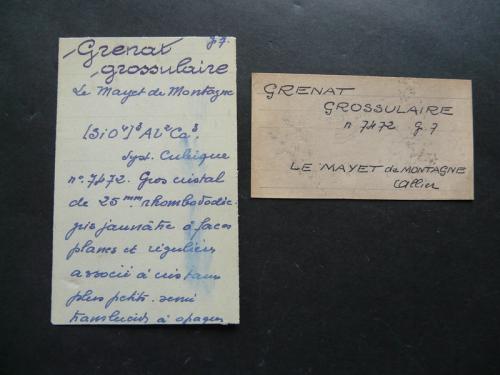 g.7.
Grenat
grossulaire
Le Mayet de Montagne
[SiO⁴]³ Al² Ca³
Syst. Cubique
n°. 7472. Gros cristal
de 25 mm rhombododéc.
gris jaunâtre à faces
planes et régulières
associé à cristaux
plus petits. semi
translucides à opaques
GRENAT
GROSSULAIRE
n° 7472 G.7
LE MAYET de MONTAGNE
Allier